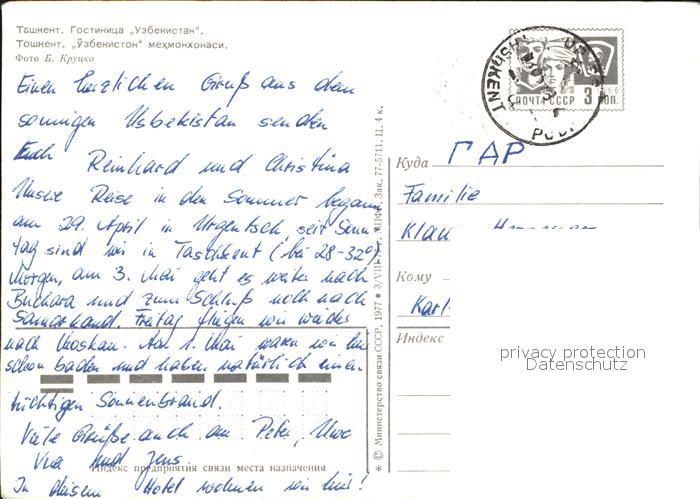 Ташкент. Гостиница „Узбекистан".
Тошкент. „Ўзбекистон" меҳмонхонаси.
Фото Б. Круцко
Einen herzlichen Gruß aus dem
sonnigen Usbekistan senden
Euch Reinhard und Christina
Unsere Reise in den Sommer begann
am 29. April in Urgentsch, seit Sonn-
tag sind wir in Taschkent (bei 28-32°)
Morgen, am 3. Mai geht es weiter nach
Buchara und zum Schluß noch nach
Samarkand. Freitag fliegen wir wieder
nach Moskau. Am 1. Mai waren wir hier
schon baden und haben natürlich einen
tüchtigen Sonnenbrand.
Viele Grüße auch an Peter, Uwe
und Jens.
In diesem Hotel wohnen wir hier!
Индекс предприятия связи места назначения
* © Министерство связи СССР, 1977 * 3/VIII-77 г. МПФГ. Зак. 77-5711. Ц. 4 к.
TASHKENT
ПОЧТА СССР 3 КОП.
Куда ГДР
Familie
Klau
Кому
Karl-
Индекс
privacy protection
Datenschutz